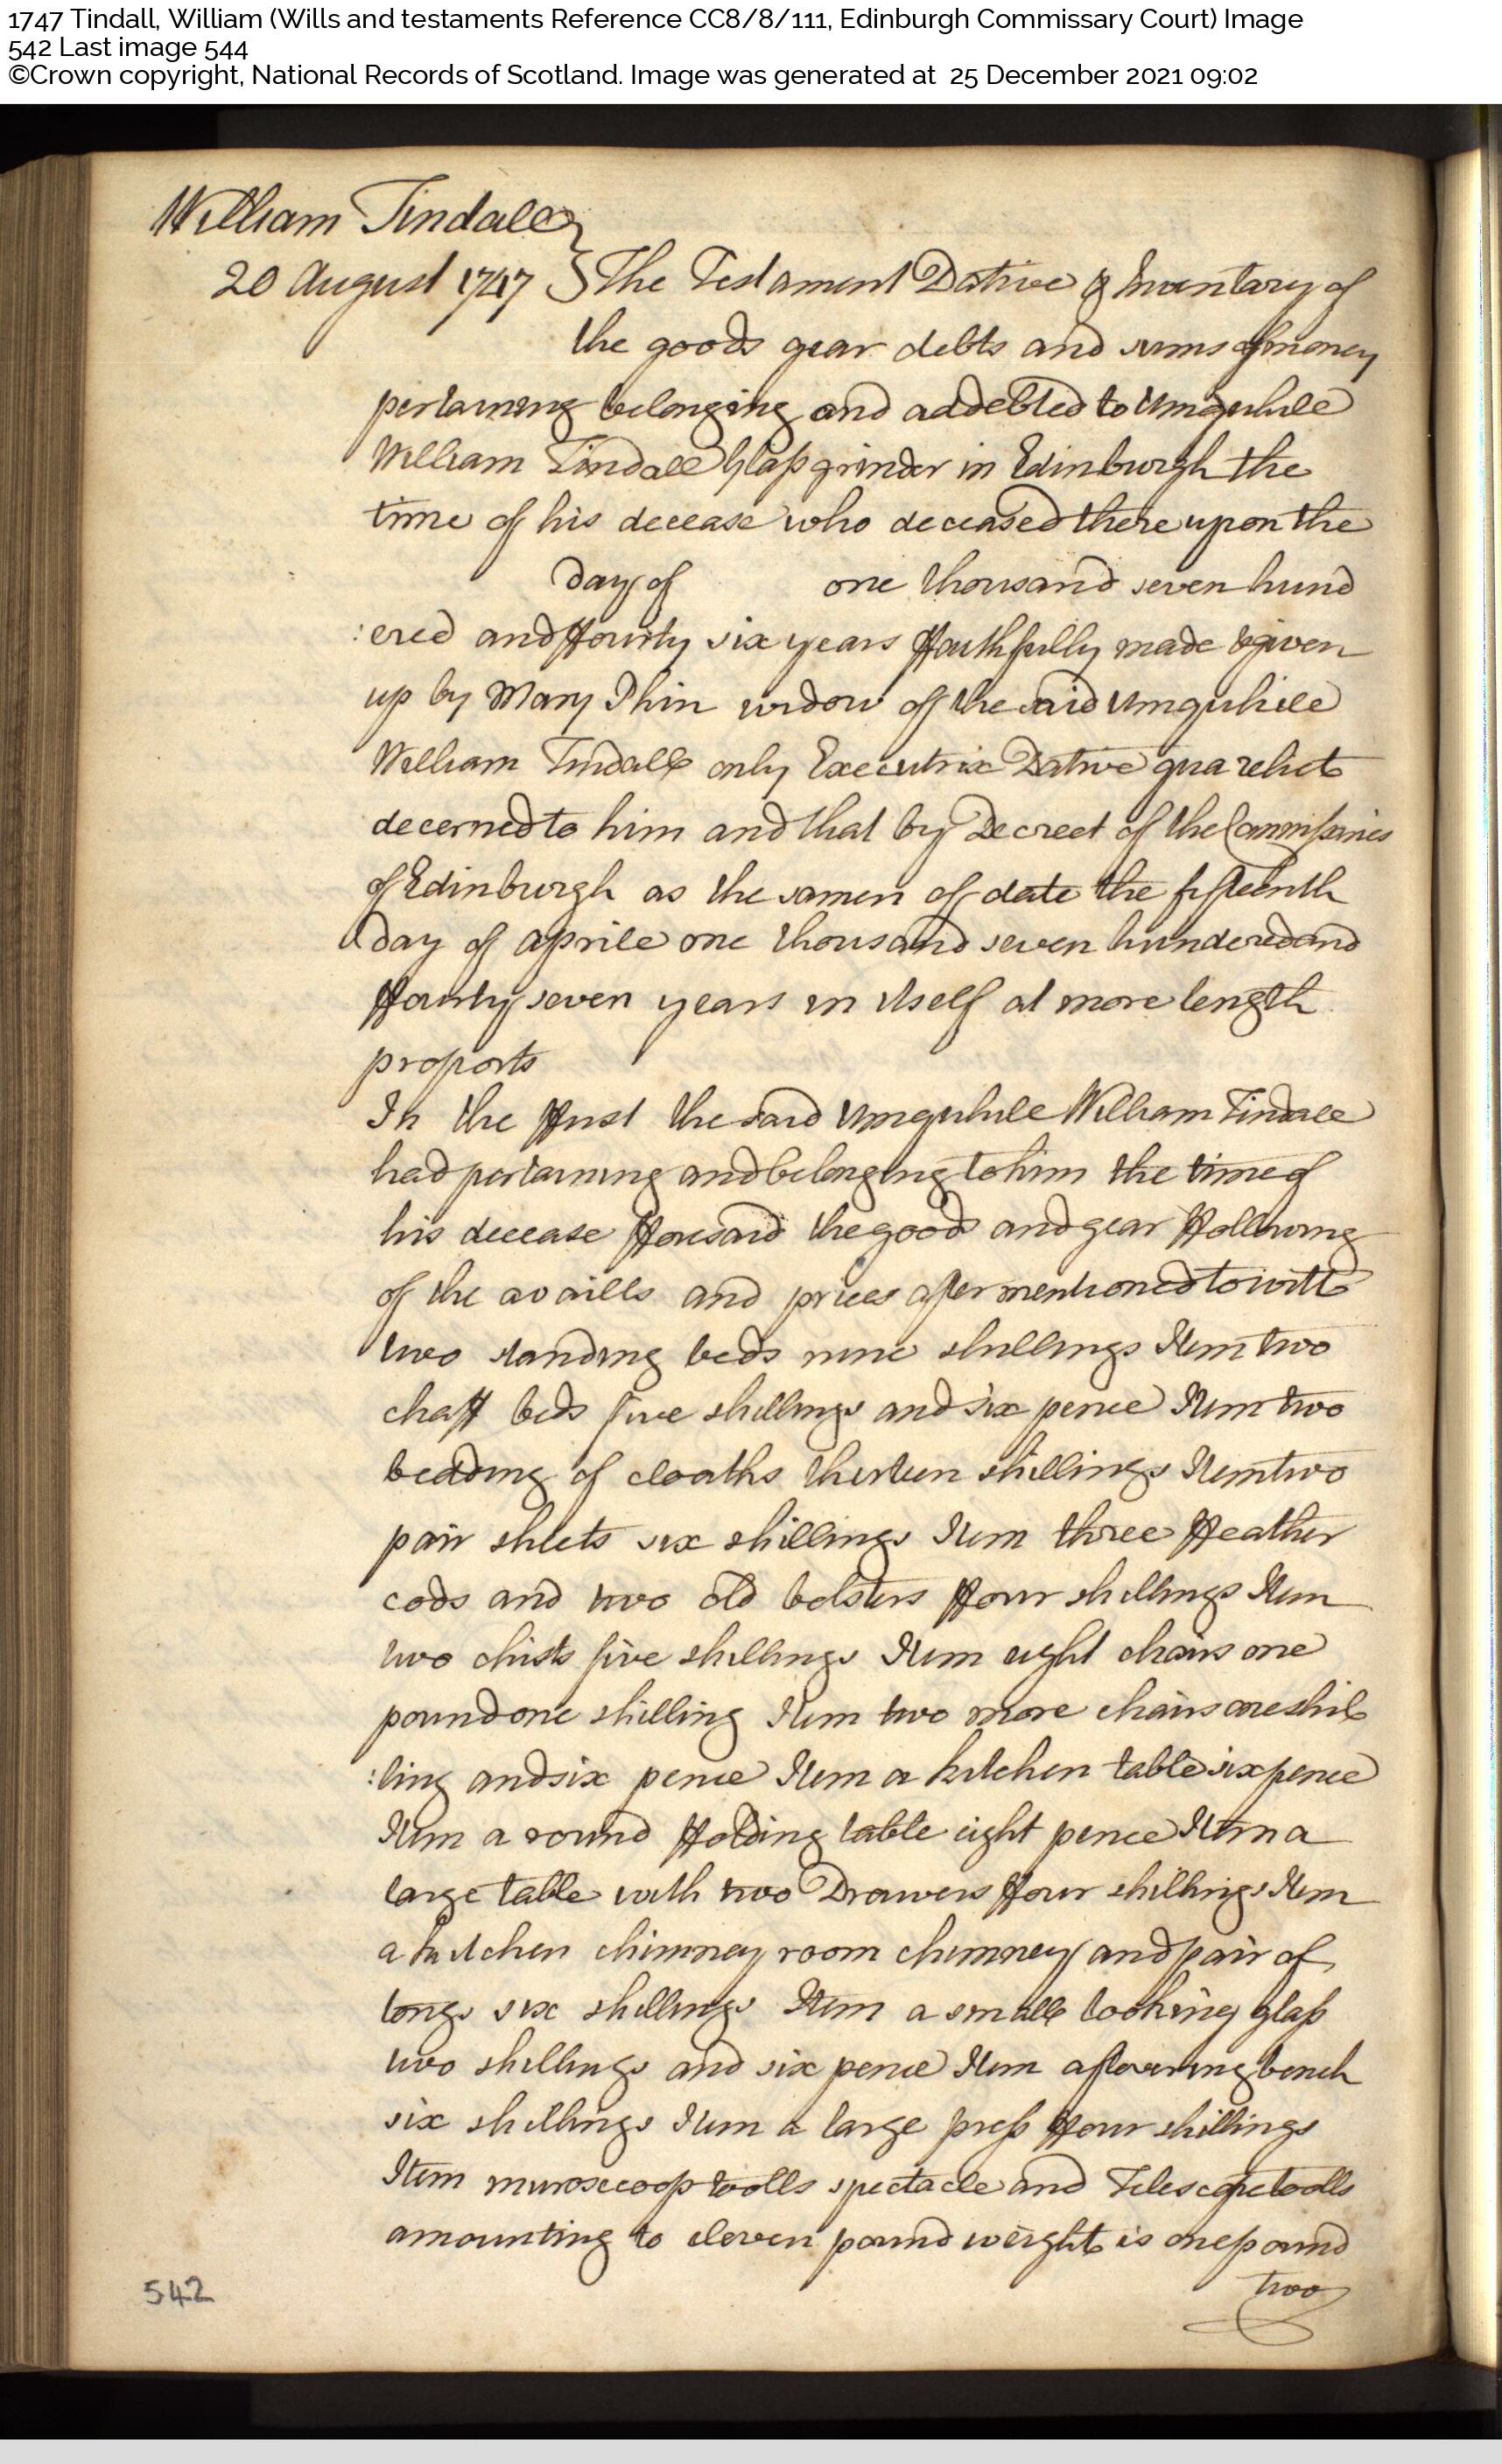 1747 Tindall, William (Wills and testaments Reference CC8/8/111, Edinburgh Commissary Court) Image
542 Last image 544
©Crown copyright, National Records of Scotland. Image was generated at 25 December 2021 09:02
William Tindall
20 August 1747 } The Testament Dative & Inventary of
the goods gear debts and sums of money
pertaining belonging and addebted to Umquhile
William Tindall Glass grinder in Edinburgh the
time of his decease who deceased there upon the
day of one thousand seven hund
:ered and ffourty six years ffaithfully made & given
up by Mary Phin widow of the said Umquhile
William Tindall only Executrix Dative qua relict
decerned to him and that by Decreet of the Commissaries
of Edinburgh as the samen of date the fifteenth
day of aprile one thousand seven hundered and
ffourty seven years in itself at more length
proports
In the ffirst the said Umquhile William Tindall
had pertaining and belonging to him the time of
his decease fforesaid the goods and gear ffollowing
of the availls and prices after mentioned to witt
two standing beds nine shillings Item two
chaff beds five shillings and six pence Item two
bedding of cloaths thirteen shillings Item two
pair sheets six shillings Item three ffeather
cods and two old bolsters ffour shillings Item
two chists five shillings Item eight chairs one
pound one shilling Item two more chairs one shil
:ling and six pence Item a kitchen table six pence
Item a round ffolding table eight pence Item a
large table with two Drawers ffour shillings Item
a kitchen chimney room chimney and pair of
tongs six shillings Item a small looking glass
two shillings and six pence Item a bench
six shillings Item a large press ffour shillings
Item muroscoop toolls spectacle and Telescope toolls
amounting to eleven pound weight is one pound
two
542